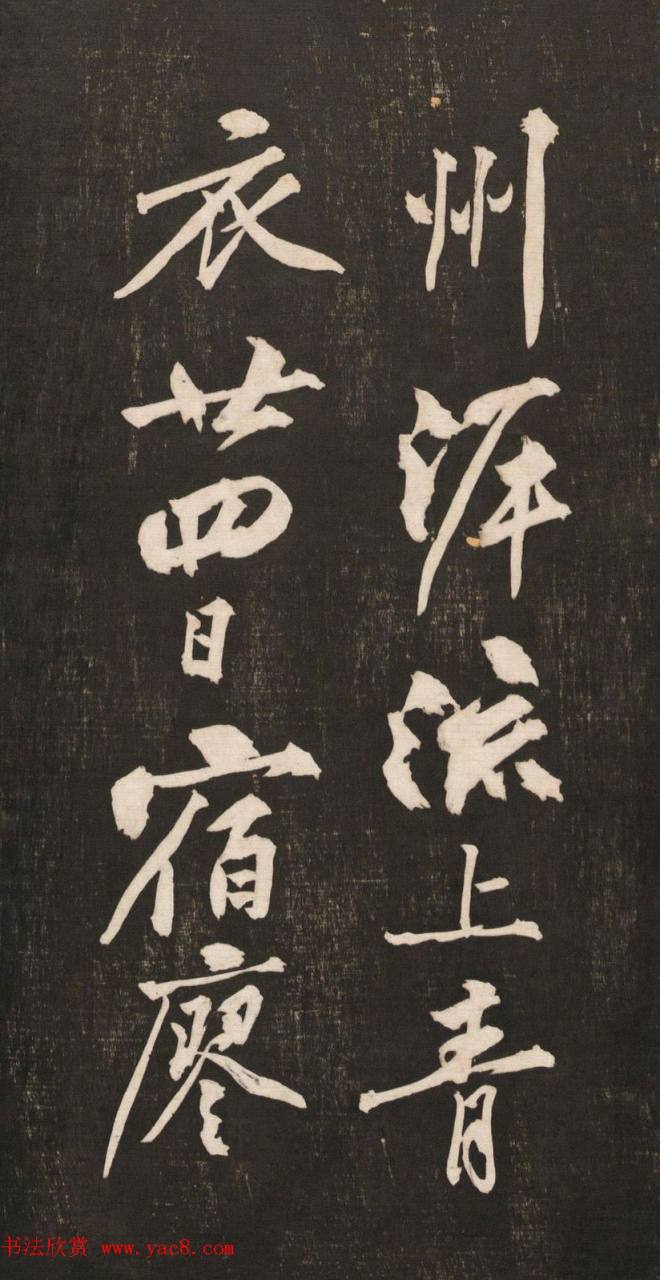 州泝流上青
衣廿四日宿廖
书法欣赏 www.yac8.com